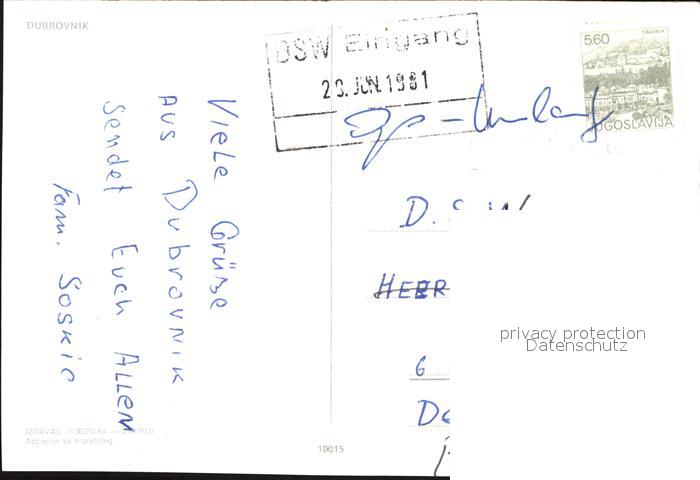 DUBROVNIK
DSW Eingang
23. JUN. 1981
5,60
TRAVNIK
JUGOSLAVIJA
Viele Grüße
aus Dubrovnik
sendet Euch Allen
Fam. Soskic
D.
HEBR
6
privacy protection
Datenschutz
IZDAVAČ »VJESNIK« — ZAGREB
Agencija za marketing
10015